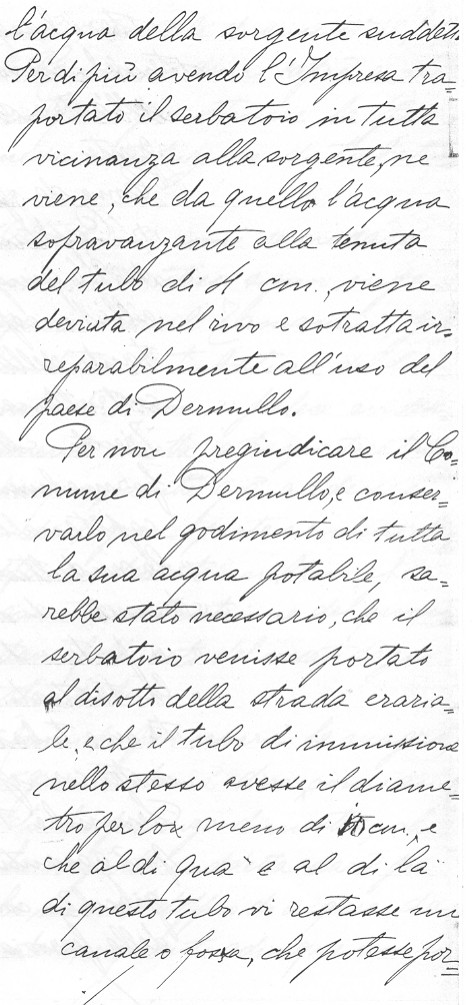 l'acqua della sorgente suddett
Per di più avendo l'Impresa tra=
portato il serbatoio in tutta
vicinanza alla sorgente, ne
viene, che da quello l'acqua
sopravanzante alla tenuta
del tubo di 4 cm., viene
deviata nel rivo e sotratta ir=
reparabilmente all'uso del
paese di Dermullo.
Per non pregiudicare il Co=
mune di Dermullo, e conser=
varlo nel godimento di tutta
la sua acqua potabile, sa=
rebbe stato necessario, che il
serbatoio venisse portato
al disotto della strada eraria=
le, e che il tubo di immissione
nello stesso avesse il diame=
tro per lo meno di cm., e
che al di quà e al di là
di questo tubo vi restasse un
canale o fossa, che potesse por=